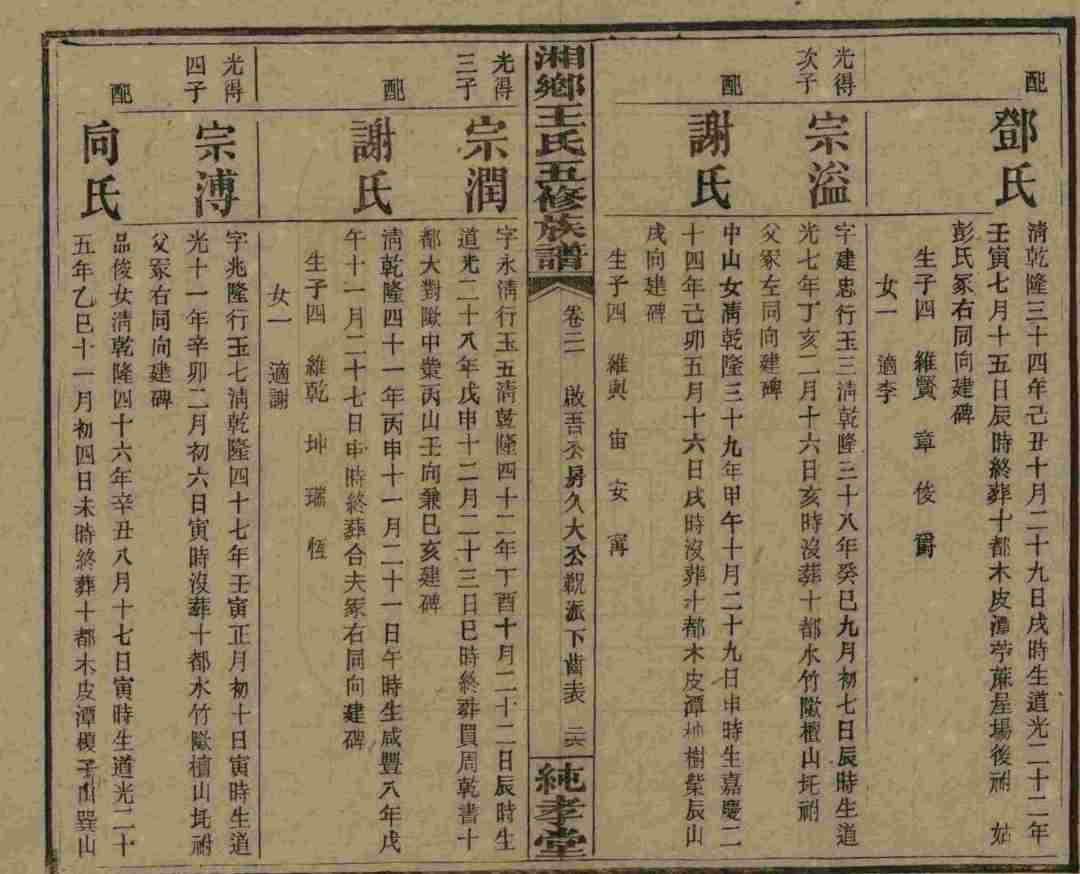 配
鄧氏
清乾隆三十四年己丑十月二十九日戌時生道光二十二年
壬寅七月十五日辰時終葬十都木皮潭苧蔴屋場後祔 姑
彭氏冢右同向建碑
生子四 維賢 章 俊 爵
女一 適李
光得
次子
宗溢
字建忠行玉三淸乾隆三十八年癸巳九月初七日辰時生道
光七年丁亥二月十六日亥時沒葬十都水竹歐檀山坉祔
父冢左同向建碑
配
謝氏
中山女淸乾隆三十九年甲午十月二十九日申時生嘉慶二
十四年己卯五月十六日戌時沒葬十都木皮潭柚樹柴辰山
戌向建碑
生子四 維與 宙 安 甯
湘鄉王氏五修族譜
卷三 啟吾公房久大公觀派下齒表 二六
純孝堂
光得
三子
宗潤
字永淸行玉五淸乾隆四十二年丁酉十月二十二日辰時生
道光二十八年戊申十二月二十三日巳時終葬買周乾書十
都大對歐中棠丙山壬向兼巳亥建碑
配
謝氏
淸乾隆四十一年丙申十一月二十一日午時生咸豐八年戊
午十一月二十七日申時終葬合夫冢右同向建碑
生子四 維乾 坤 瑞 恆
女一 適謝
光得
四子
宗溥
字兆隆行玉七淸乾隆四十七年壬寅正月初十日寅時生道
光十一年辛卯二月初六日寅時沒葬十都水竹歐檀山坉祔
父冢右同向建碑
配
向氏
品俊女淸乾隆四十六年辛丑八月十七日寅時生道光二十
五年乙巳十一月初四日未時終葬十都木皮潭榎子山巽山